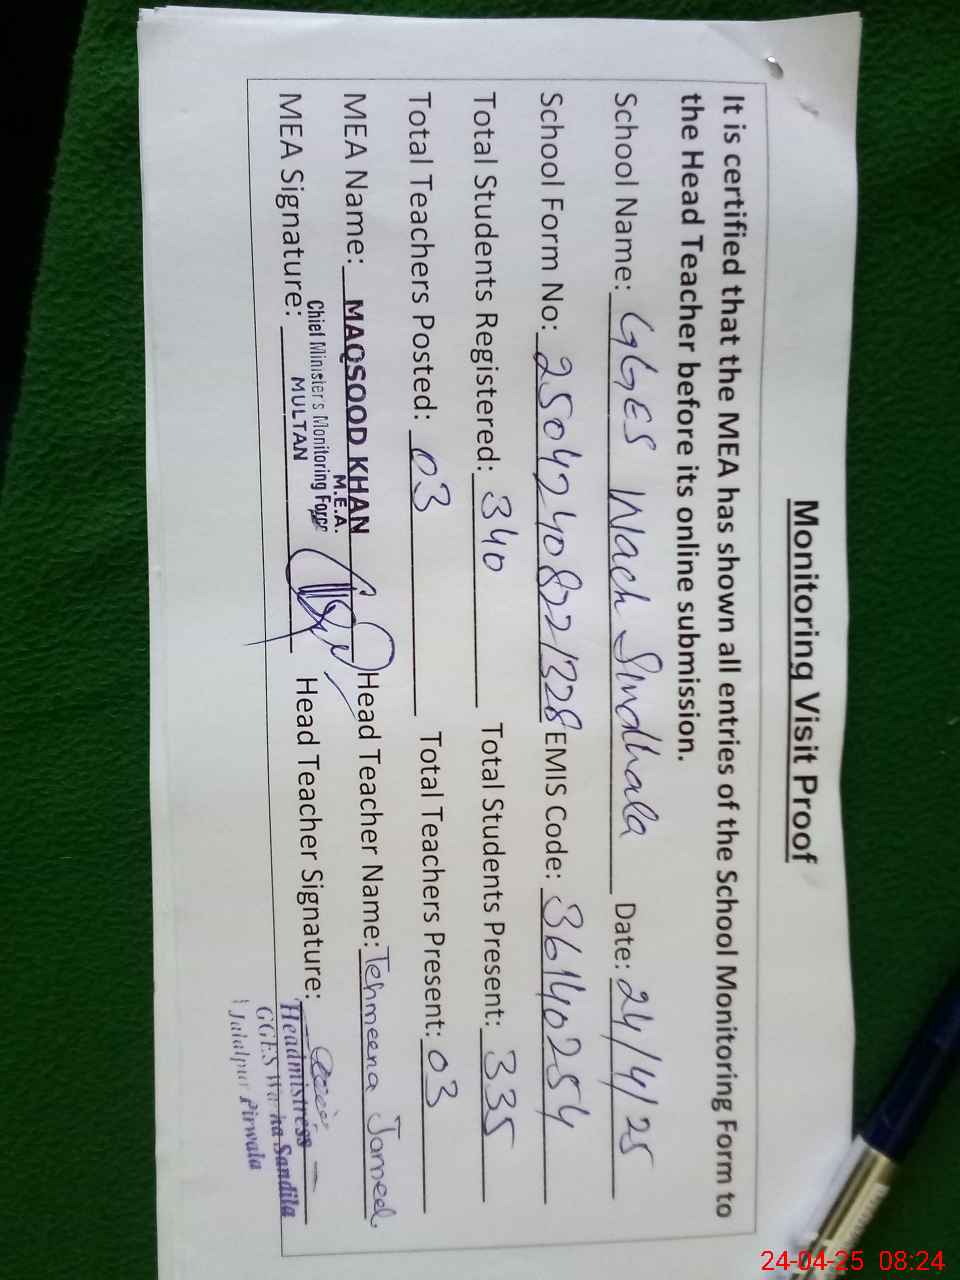 Monitoring Visit Proof
It is certified that the MEA has shown all entries of the School Monitoring Form to
the Head Teacher before its online submission.
School Name: GGES Wach Sindhala Date: 24/4/25
School Form No: 25042408221328 EMIS Code: 36140254
Total Students Registered: 340 Total Students Present: 335
Total Teachers Posted: 03 Total Teachers Present: 03
MEA Name: MAQSOOD KHAN Head Teacher Name: Tehmeena Jameel
M.E.A.
Chief Minister's Monitoring Force
MULTAN
MEA Signature: Head Teacher Signature:
Headmistress
GGES Sandila
Jalalpur Pirwala
24-04-25 08:24